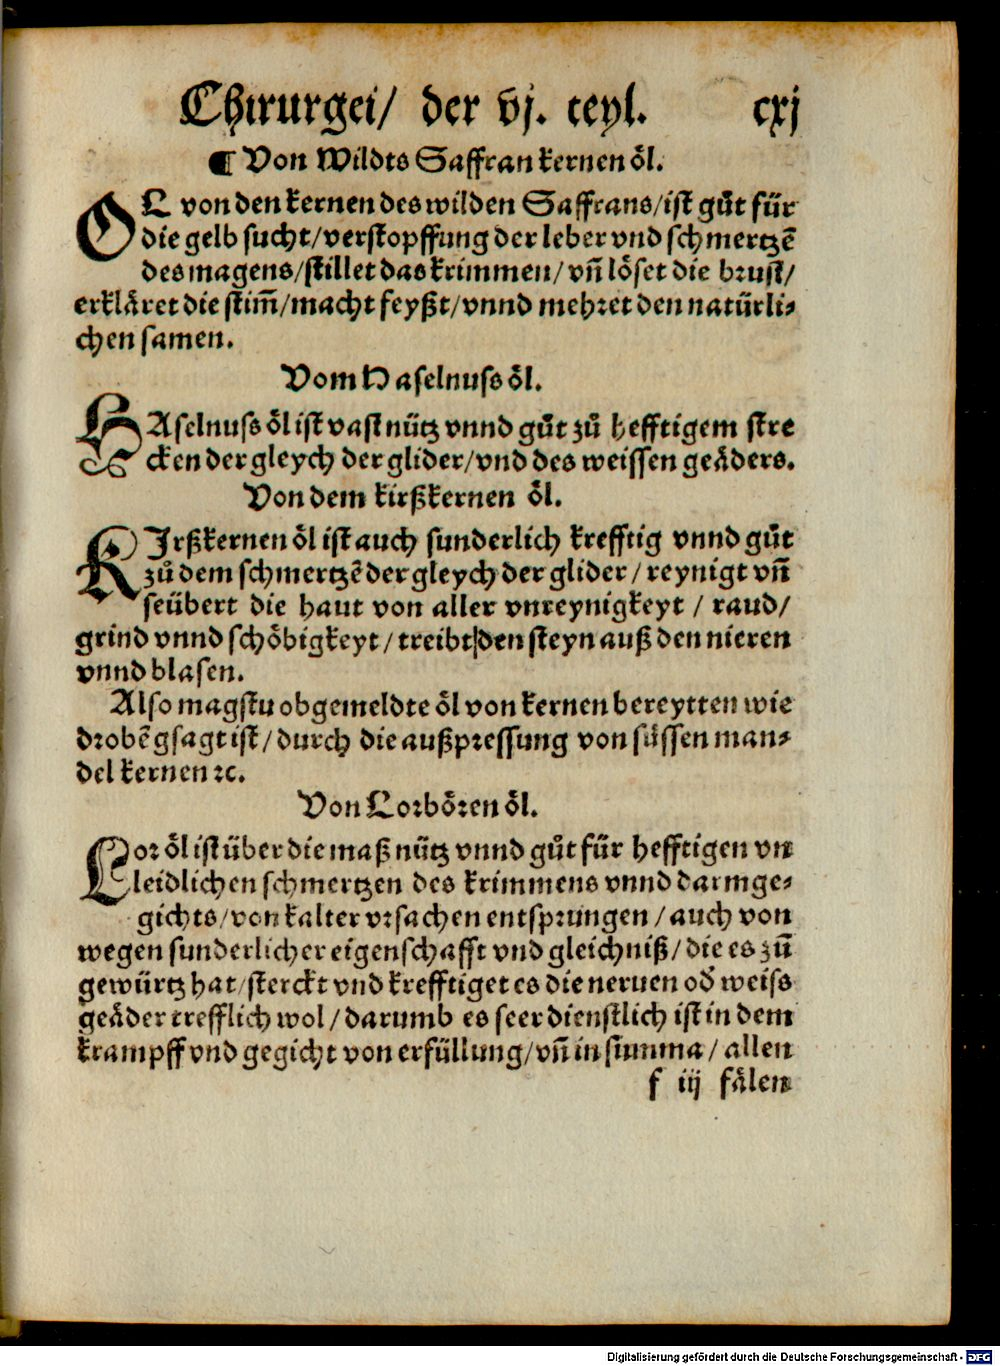 Chirurgei/ der vj. teyl. cxj
¶ Von Wildts Saffran kernen öl.
OL von den kernen des wilden Saffrans/ist gůt für
die gelb sucht/verstopffung der leber vnd schmertzē
des magens/stillet das krimmen/vn̄ löset die brust/
erkläret die stim̄/macht feyßt/vnnd mehret den natürli⸗
chen samen.
Vom Haselnuss öl.
HAselnuss öl ist vast nütz vnnd gůt zů hefftigem stre
cken der gleych der glider/vnd des weissen geäders.
Von dem kirßkernen öl.
KJrßkernen öl ist auch sunderlich krefftig vnnd gůt
zů dem schmertzē der gleych der glider/reynigt vn̄
seübert die haut von aller vnreynigkeyt/raud/
grind vnnd schöbigkeyt/treibt den steyn auß den nieren
vnnd blasen.
Also magstu obgemeldte öl von kernen bereytten wie
drobē gsagt ist/durch die außpressung von süssen man⸗
del kernen ꝛc.
Von Lorbören öl.
Lor öl ist über die maß nütz vnnd gůt für hefftigen vn
leidlichen schmertzen des krimmens vnnd darmge⸗
gichts/von kalter vrsachen entsprungen/auch von
wegen sunderlicher eigenschafft vnd gleichniß/die es zů
gewürtz hat/sterckt vnd krefftiget es die neruen od̓ weiss
geäder trefflich wol/darumb es seer dienstlich ist in dem
krampff vnd gegicht von erfüllung/vn̄ in summa/allen
f iij fälen
Digitalisierung gefördert durch die Deutsche Forschungsgemeinschaft - DFG